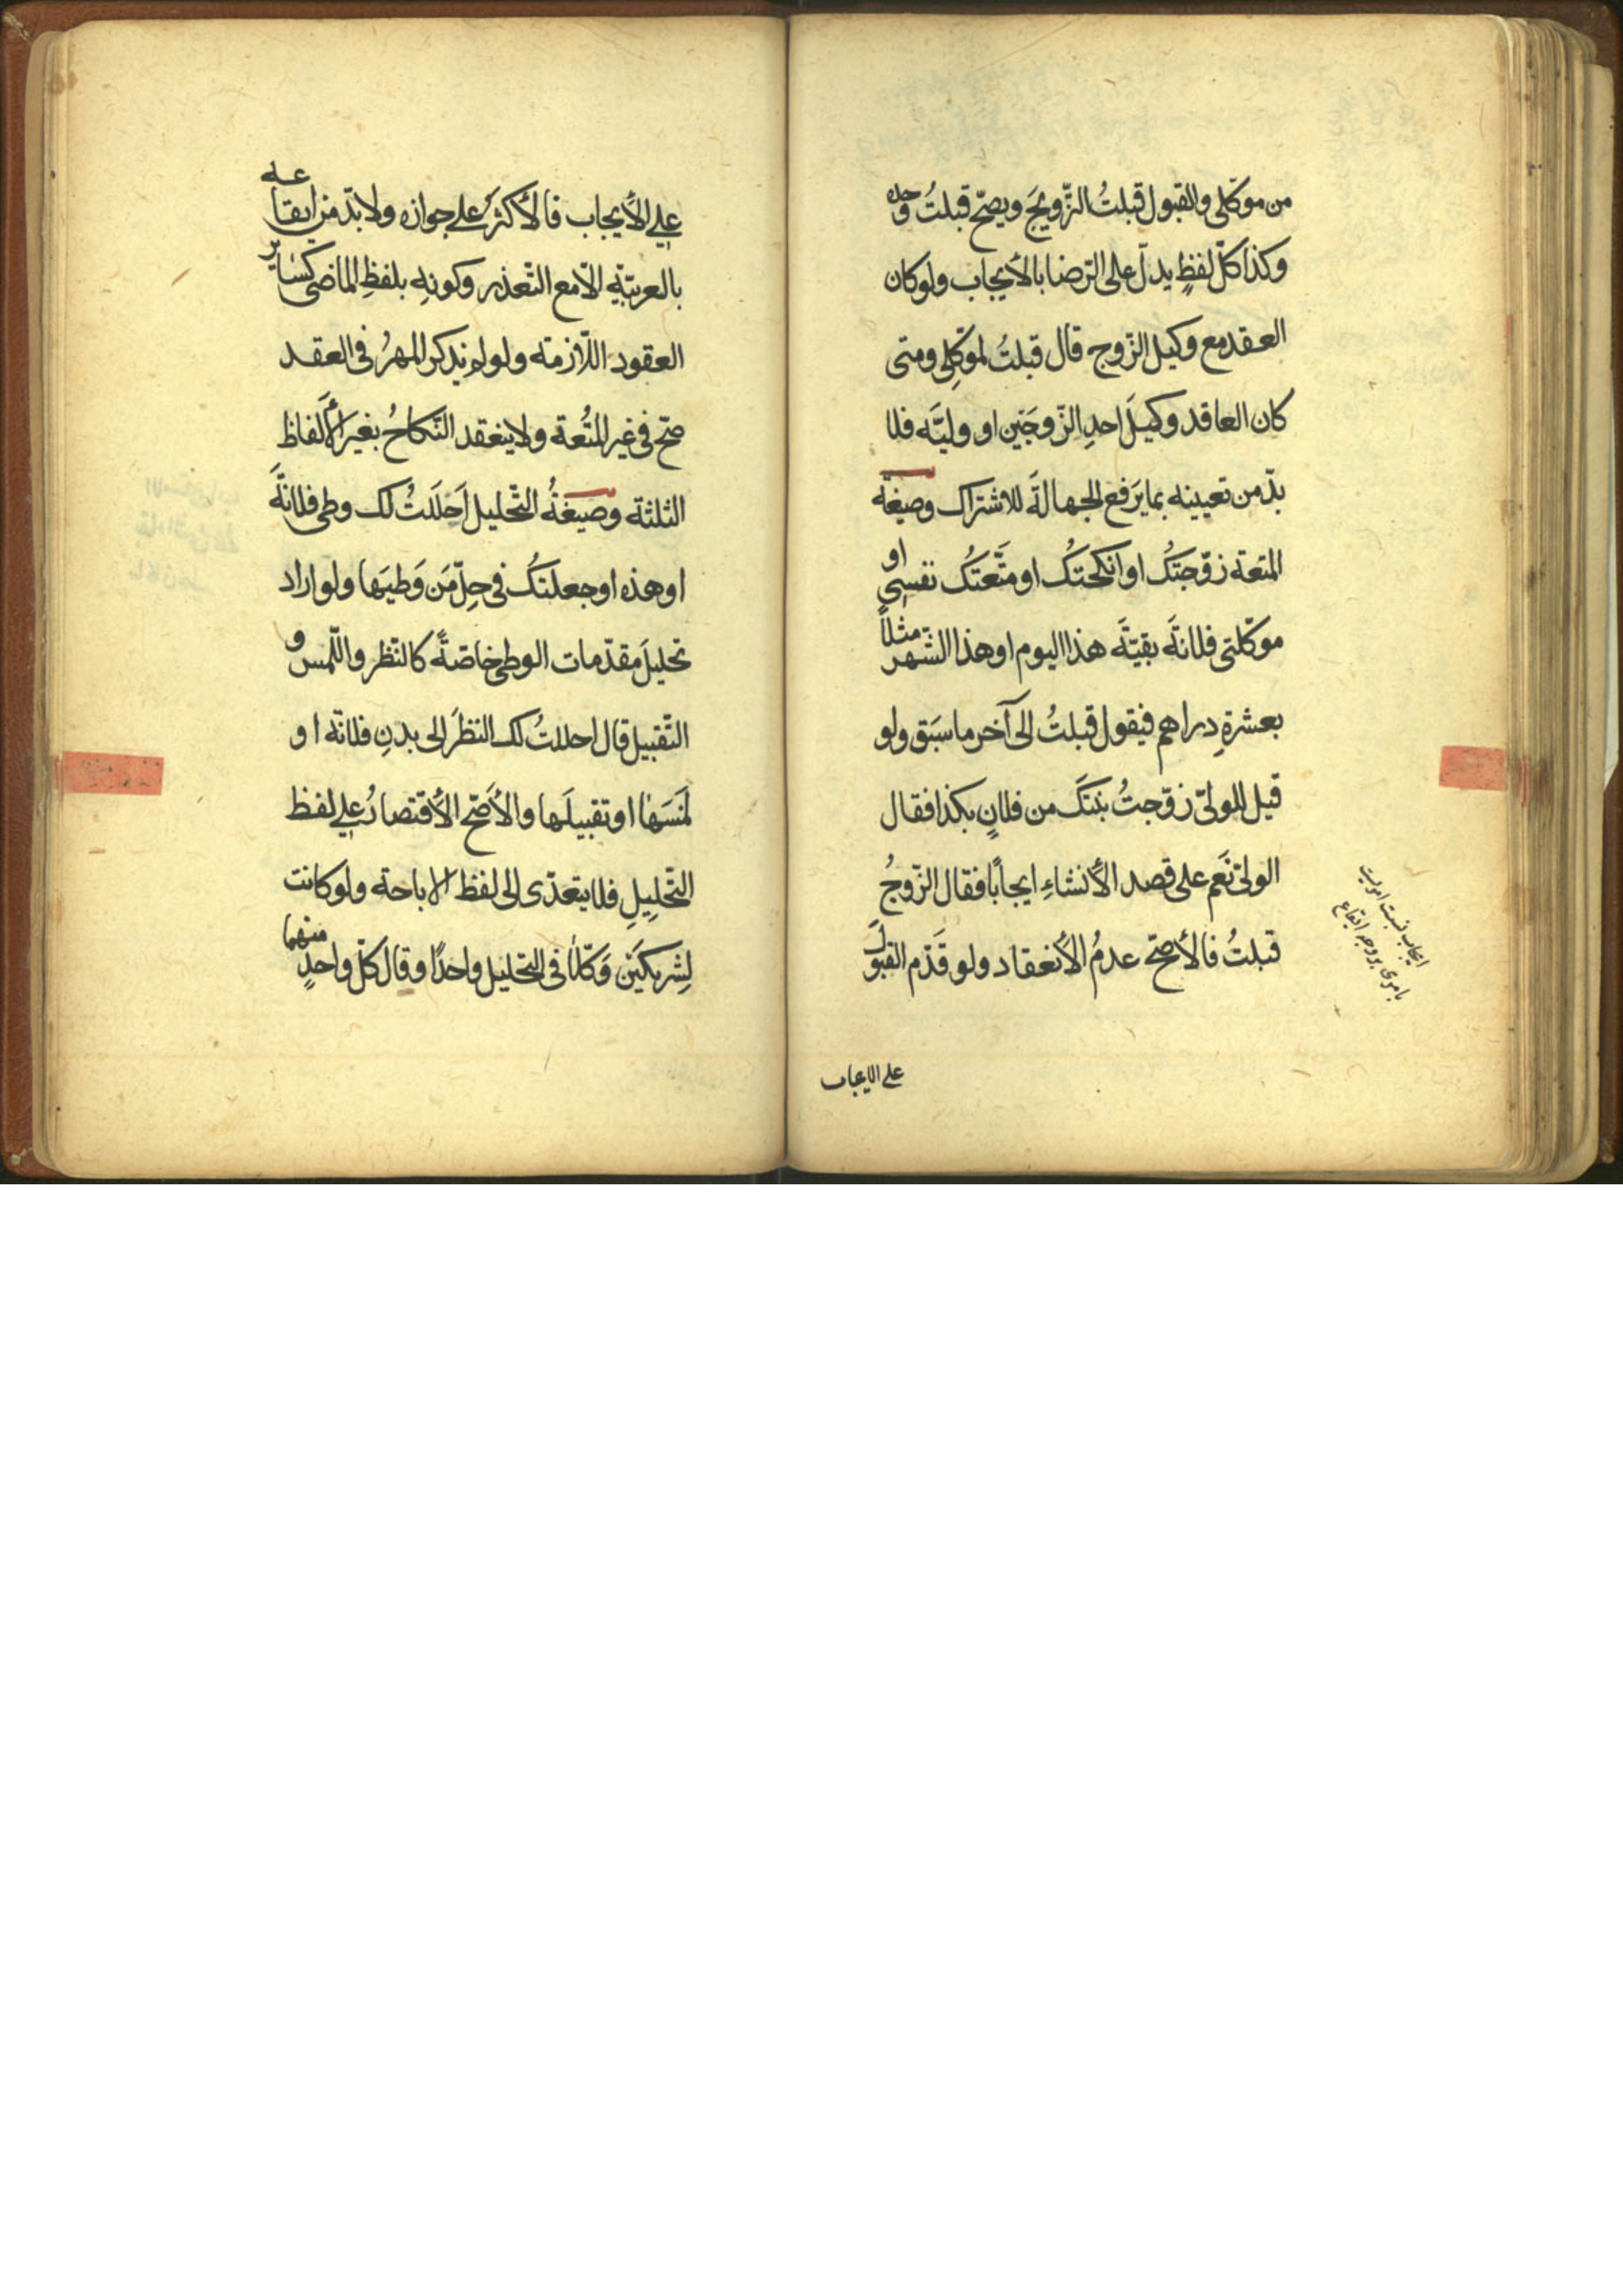 من موكّلي والقبول قبلتُ التّزويجَ ويصحّ قبلتُ وحده
وكذا كلّ لفظٍ يدلّ على الرّضا بالأيجاب ولو كان
العقد مع وكيل الزّوج قال قبلتُ لموكّلي ومتى
كان العاقد وكيلَ احدِ الزّوجَين او وليّه فلا
بدّ من تعيينه بما يرفع الجهالةَ للاشتراك وصيغة
المتعة زوّجتكُ او انكحتكُ او متّعتكُ نفسي او
موكّلتي فلانةَ بقيّةَ هذا اليوم او هذا الشّهر مثلاً
بعشرةِ دراهم فيقول قبلتُ الى آخر ما سبَق ولو
قيل للولىّ زوّجتُ بنتكَ من فلانٍ بكذا فقال
الولىّ نعَم على قصد الأنشاءِ ايجابًا فقال الزّوجُ
قبلتُ فالأصحّ عدمُ الأنعقاد ولو قَدّم القبولَ
على الايجاب
على الأيجاب فالأكثرُ على جوازه ولا بدّ من ايقاعه
بالعربيّةِ الّا مع التّعذر وكونهِ بلفظِ الماضى كسَاير
العقود اللّازمة ولو لم يذكر المهرُ فى العقد
صحّ فى غير المتُعة ولا ينعقد النّكاحُ بغير الألفاظ
الثلثة وصيغةُ التّحليل اَحلَلتُ لك وطى فلانةَ
او هذه او جعلتكُ فى حِلّ مَن وَطيَها ولو اراد
تحليلَ مقدّمات الوطى خاصّةً كالنّظر واللّمس و
التّقبيل قال احللتُ لك النظرَ الى بدنِ فلانة او
لمَسَها او تقبيلَها والأصَحّ الأقتصارُ على لفظ
التّحليلِ فلا يتعدّى الى لفظ الاباحة ولو كانت
لِشريكَين وَكّلا فى التّحليل واحدًا وقال كلّ واحدٍ منهما